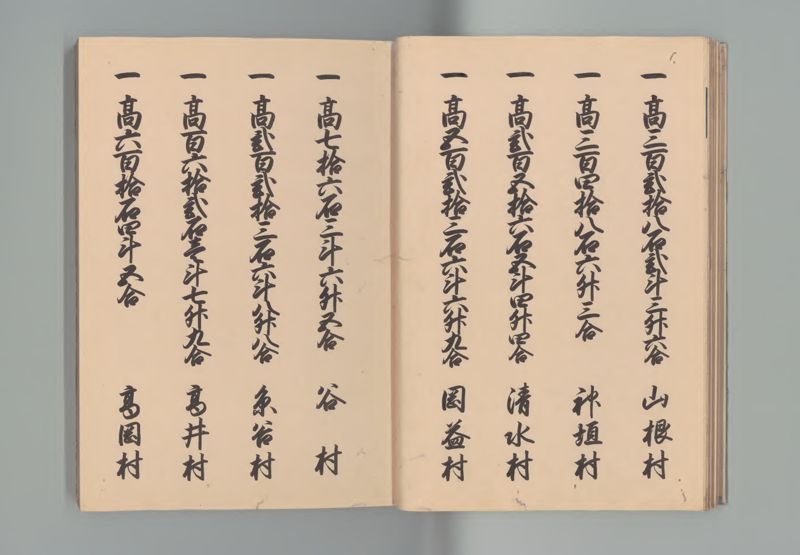 一 高三百弐拾八石弐斗三升六合 山根村
一 高三百四拾八石六升三合 神埴村
一 高弐百五拾六石五斗四升四合 清水村
一 高五百弐拾三石六斗六升九合 岡益村
一 高七拾六石三斗六升五合 谷村
一 高弐百弐拾三石六斗八升八合 糸谷村
一 高百六拾弐石壱斗七升九合 高井村
一 高六百拾石四斗五合 高岡村